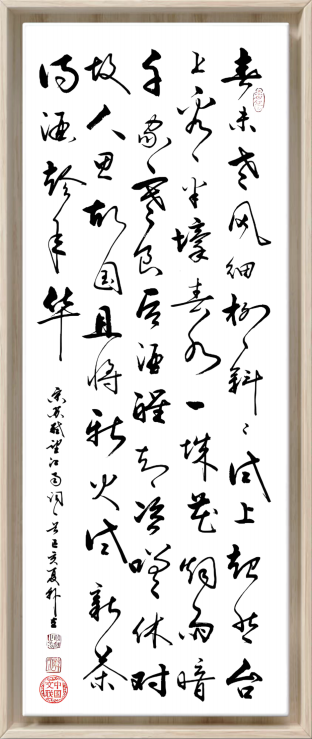 春未老风细柳斜々试上超然台
上看半壕春水一城花烟雨暗
千家寒食后酒醒却咨嗟休对
故人思故国且将新火试新茶
诗酒趁年华
宋苏轼望江南词己亥夏